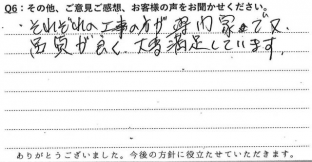 Q6：その他、ご意見ご感想、お客様の声をお聞かせください。
・それぞれの工事の方が専門家で又
品質が良く、大変満足しています。
ありがとうございました。今後の方針に役立たせていただきます。